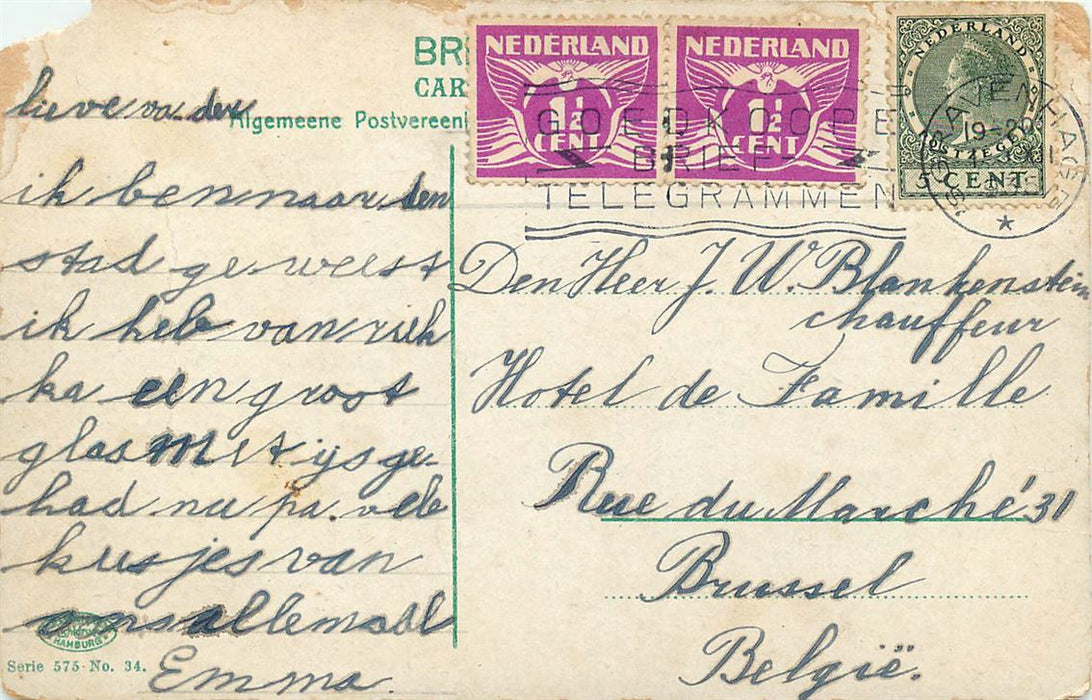 BR
CAR
Algemeene Postvereeni
NEDERLAND
1½
CENT
NEDERLAND
1½
CENT
NEDERLAND
POSTZEGEL
5 CENT
GOEDKOOPE
BRIEF-
TELEGRAMMEN
'S-GRAVENHAGE
lieve va der
ik ben naar den
stad geweest
ik heb van riek
ka een groot
glas met ijs ge-
had nu pa. vele
kusjes van
ons allemaal
Emma.
Den Heer J. W. Blankenstein
chauffeur
Hotel de Famille
Rue du Marché 31
Brussel
België.
HAMBURG
Serie 575-No. 34.